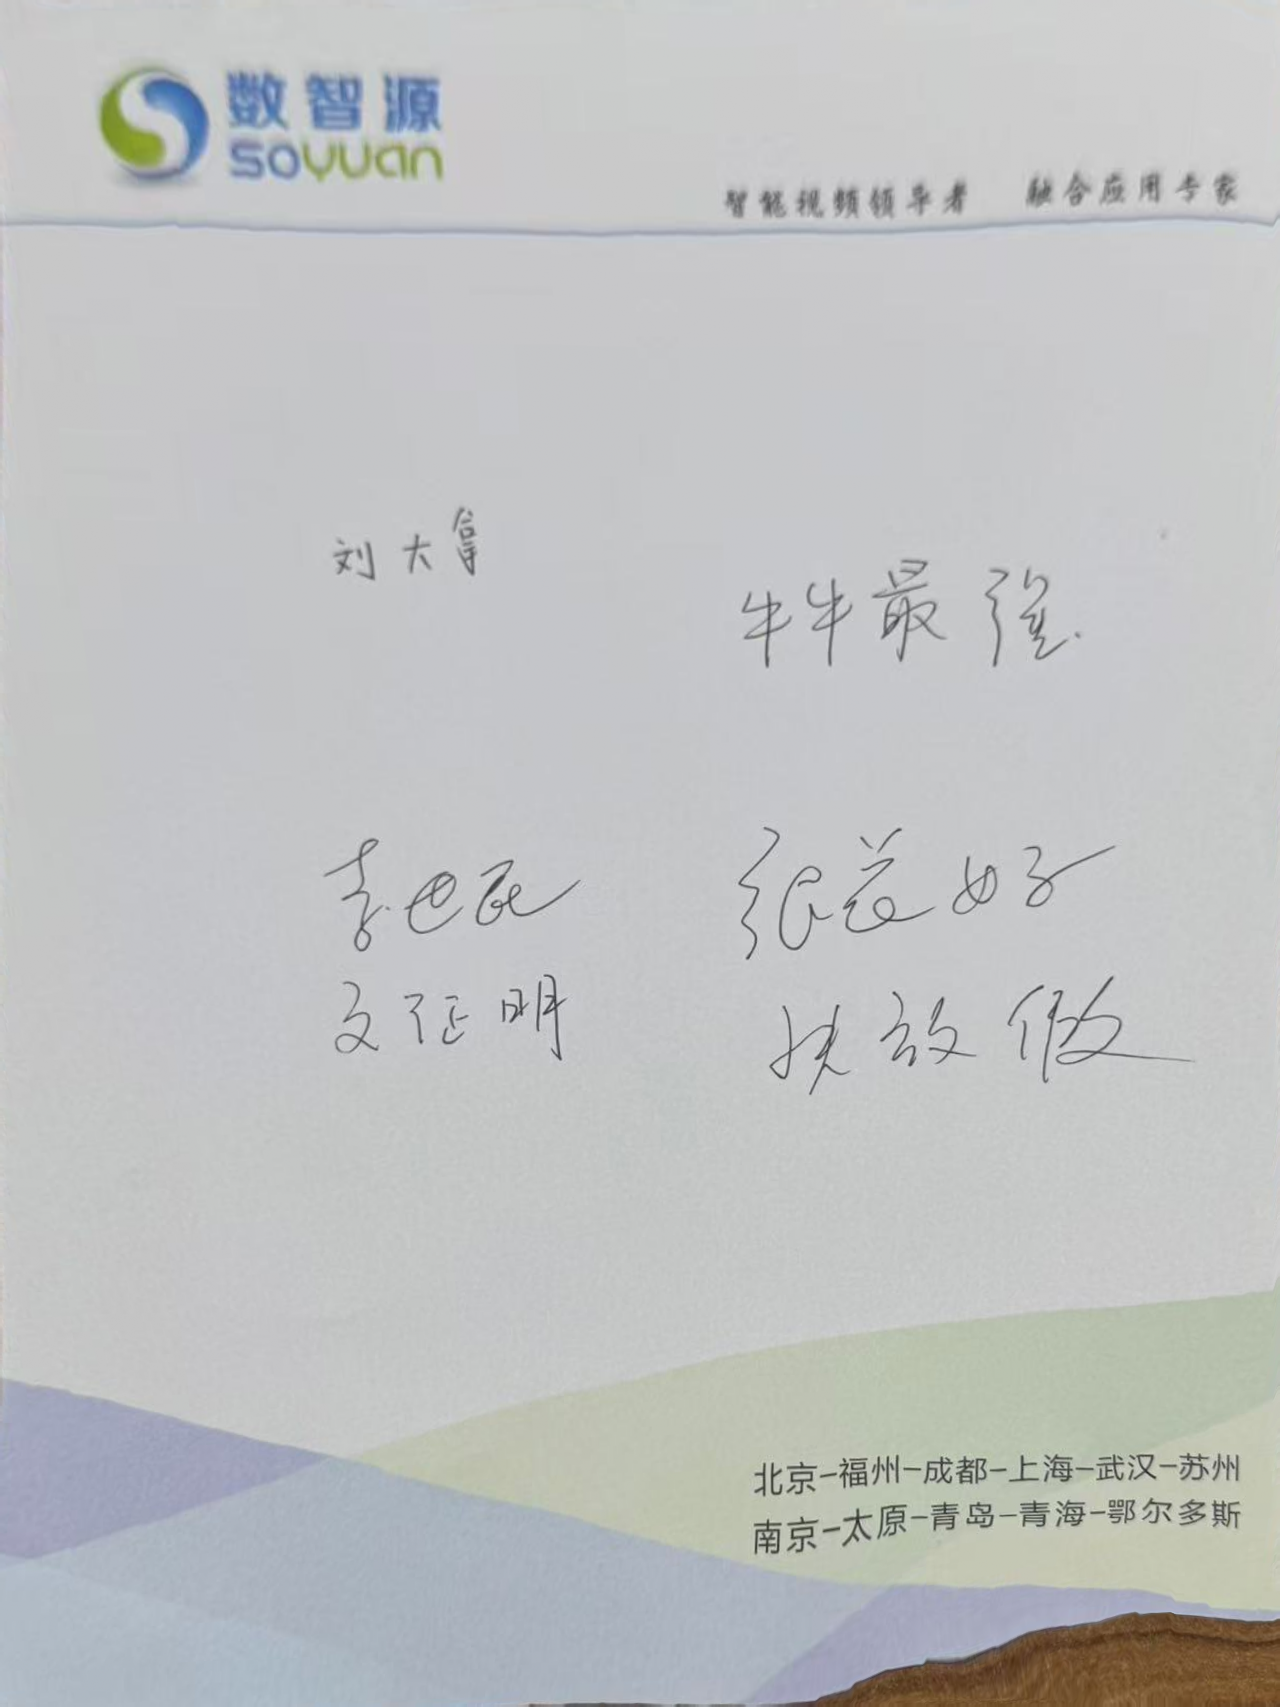 数智源
SOYUAN
智能视频领导者 融合应用专家
刘大拿
牛牛最强
李世民
张益好
文征明
快放假
北京-福州-成都-上海-武汉-苏州
南京-太原-青岛-青海-鄂尔多斯